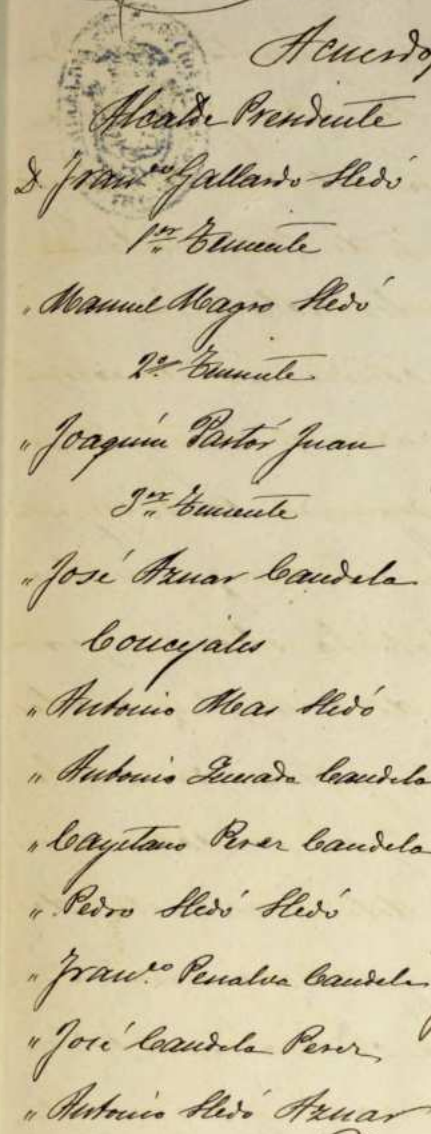 Acuerdo
Alcalde Presidente
D. Fran.co Gallardo Lledó
1er Teniente
" Manuel Magro Lledó
2º Teniente
" Joaquin Pastór Juan
3er Teniente
" José Aznar Candela
Concejales
" Antonio Mas Lledó
" Antonio Quesada Candela
" Cayetano Perez Candela
" Pedro Lledó Lledó
" Fran.co Penalva Candela
" José Candela Perez
" Antonio Lledó Aznar